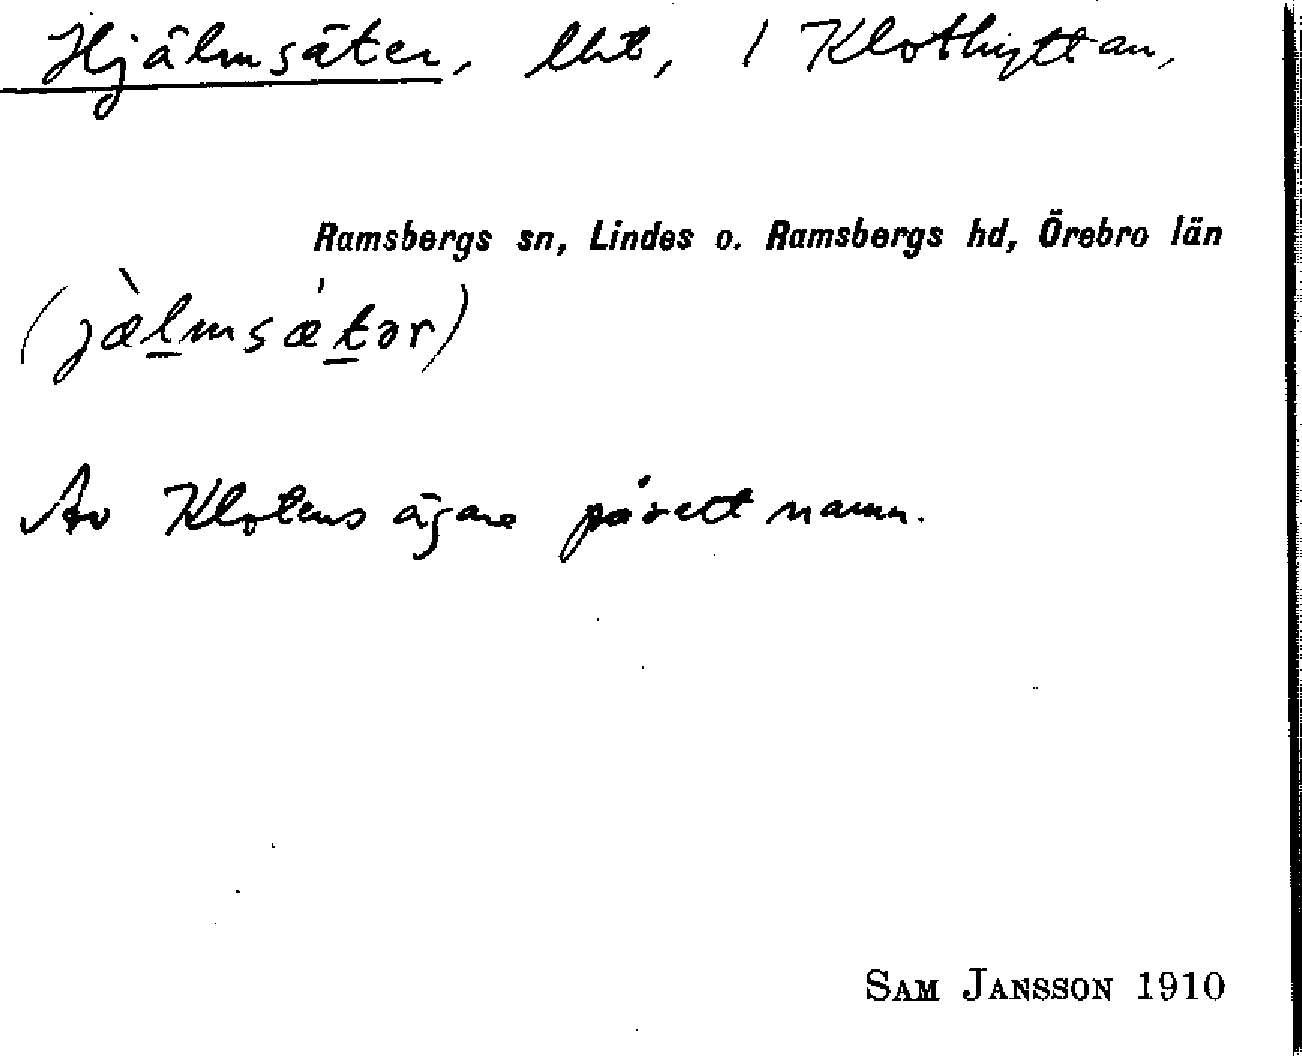 Hjälmsäter, lht, 1 Klothyttan,
Ramsbergs sn, Lindes o. Ramsbergs hd, Örebro län
(jæ̀lmsæ'tər)
Av Klotens ägare påsett namn.
SAM JANSSON 1910